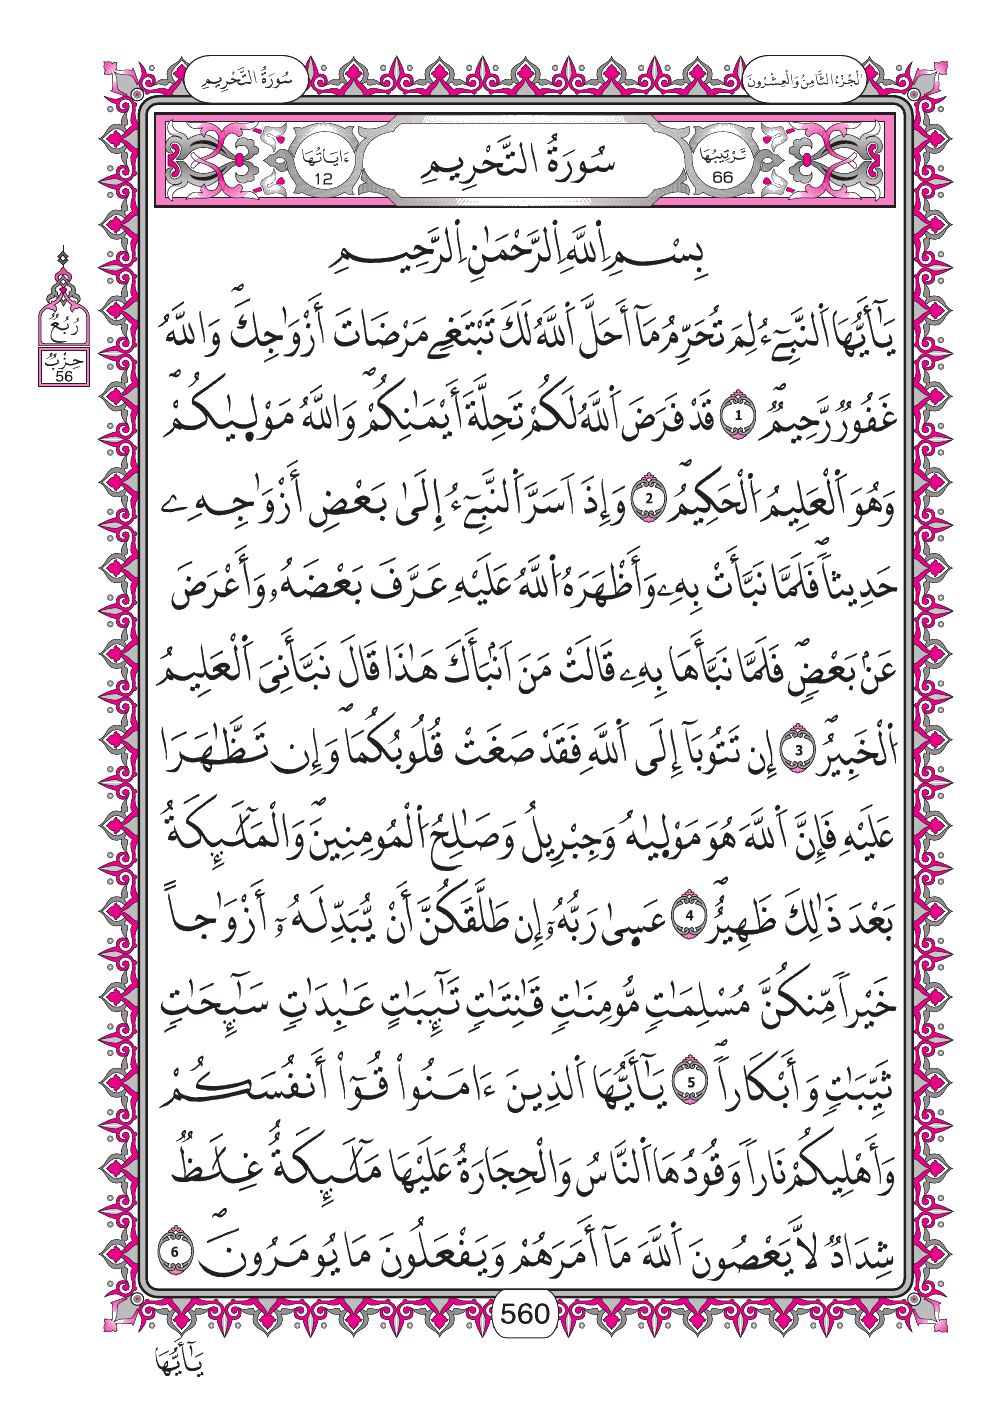 سُورَةُ التَّحْرِيمِ
الْجُزْءُ الثَّامِنُ وَالْعِشْرُونَ
ءَايَاتُهَا 12
سُورَةُ التَّحْرِيمِ
تَرْتِيبُهَا 66
بِسْمِ اِ۬للَّهِ اِ۬لرَّحْمَٰنِ اِ۬لرَّحِيمِ
رُبُعُ
حِزْبُ
56
يَٰٓأَيُّهَا اَ۬لنَّبِےٓءُ لِمَ تُحَرِّمُ مَآ أَحَلَّ اَ۬للَّهُ لَكَ تَبْتَغِے مَرْضَاتَ أَزْوَٰجِكَۖ وَاللَّهُ
غَفُورٞ رَّحِيمٞۖ 1 قَدْ فَرَضَ اَ۬للَّهُ لَكُمْ تَحِلَّةَ أَيْمَٰنِكُمْۖ وَاللَّهُ مَوْل۪يٰكُمْۖ
وَهُوَ اَ۬لْعَلِيمُ اُ۬لْحَكِيمُۖ 2 وَإِذَ اَسَرَّ اَ۬لنَّبِےٓءُ إِلَىٰ بَعْضِ أَزْوَٰجِهِۦ
حَدِيثاٗۖ فَلَمَّا نَبَّأَتْ بِهِۦ وَأَظْهَرَهُ اُ۬للَّهُ عَلَيْهِ عَرَّفَ بَعْضَهُۥ وَأَعْرَضَ
عَنۢ بَعْضٖۖ فَلَمَّا نَبَّأَهَا بِهِۦ قَالَتْ مَنَ اَنۢبَأَكَ هَٰذَا قَالَ نَبَّأَنِيَ اَ۬لْعَلِيمُ
اُ۬لْخَبِيرُۖ 3 إِن تَتُوبَآ إِلَى اَ۬للَّهِ فَقَدْ صَغَتْ قُلُوبُكُمَاۖ وَإِن تَظَّٰهَرَا
عَلَيْهِ فَإِنَّ اَ۬للَّهَ هُوَ مَوْل۪يٰهُ وَجِبْرِيلُ وَصَٰلِحُ اُ۬لْمُومِنِينَۖ وَالْمَلَٰٓئِكَةُ
بَعْدَ ذَٰلِكَ ظَهِيرٌۖ 4 عَس۪يٰ رَبُّهُۥٓ إِن طَلَّقَكُنَّ أَنْ يُّبَدِّلَهُۥٓ أَزْوَٰجاً
خَيْراٗ مِّنكُنَّ مُسْلِمَٰتٖ مُّومِنَٰتٖ قَٰنِتَٰتٖ تَٰٓئِبَٰتٍ عَٰبِدَٰتٖ سَٰٓئِحَٰتٖ
ثَيِّبَٰتٖ وَأَبْكَاراٗۖ 5 يَٰٓأَيُّهَا اَ۬لذِينَ ءَامَنُواْ قُوٓاْ أَنفُسَكُمْ
وَأَهْلِيكُمْ نَاراٗ وَقُودُهَا اَ۬لنَّاسُ وَالْحِجَارَةُ عَلَيْهَا مَلَٰٓئِكَةٌ غِلَٰظٞ
شِدَادٞ لَّا يَعْصُونَ اَ۬للَّهَ مَآ أَمَرَهُمْ وَيَفْعَلُونَ مَا يُومَرُونَۖ 6
560
يَٰٓأَيُّهَا